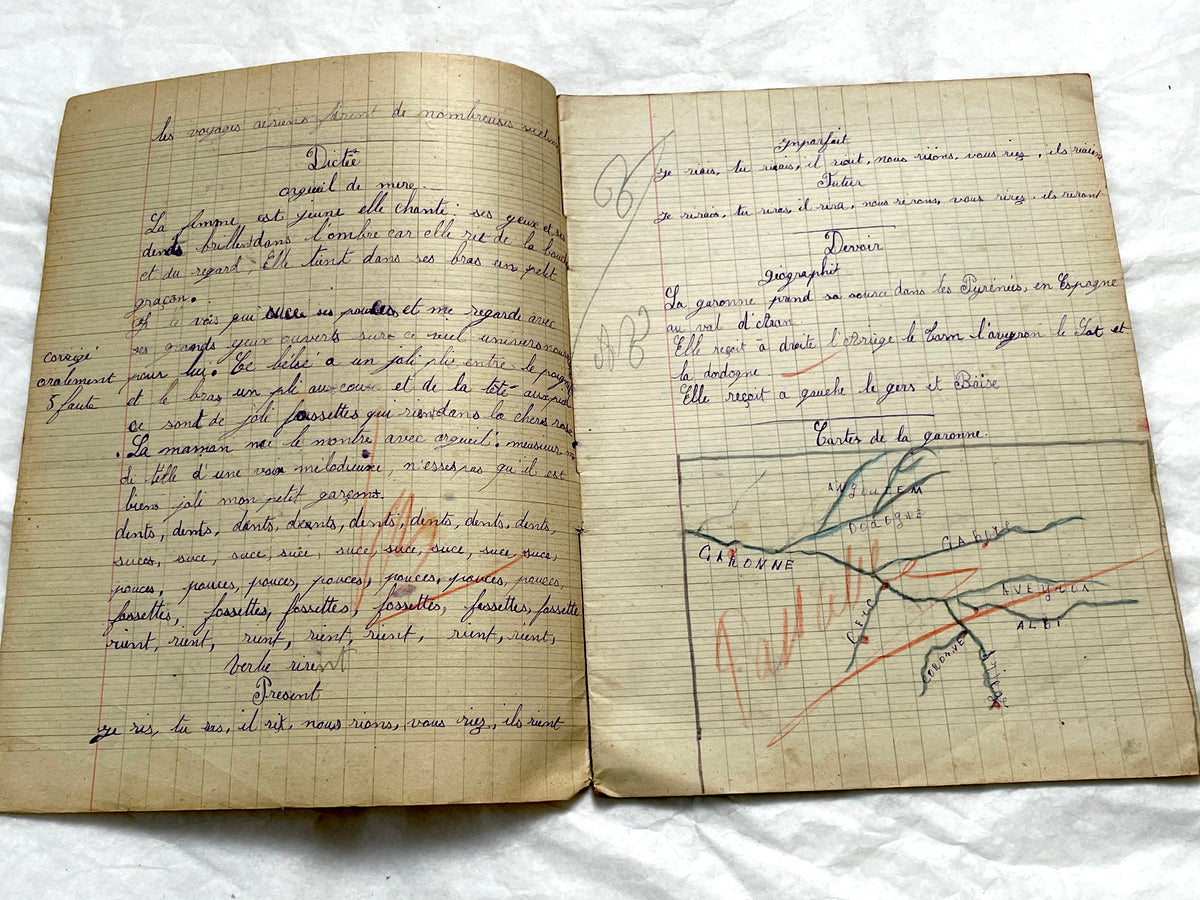 les voyages aériens firent de nombreuses victimes
Dictée
orgueil de mère.
La femme est jeune elle chante. ses yeux et ses
dents brillent dans l'ombre car elle rit de la bouche
et du regard, Elle tient dans ses bras un petit
graçon.
Je le vois qui suce ses pouces et me regarde avec
ses grands yeux ouverts sur ce viel univers nouveau
corrigé
oralement
5 faute
pour lui. Ce bébé a un joli pli entre le poignet
et le bras un pli au cou et de la tété aux pied
ce sont de joli fossettes qui rient dans la chere rose
. La maman me le montre avec orgueil. monsieur m
di telle d'une voix mélodieuse, n'esses pas qu'il est
bien joli mon petit garçons.
dents, dents, dents, dents, dents, dents, dents, dents,
suces, suce, suce, suce, suce, suce, suce, suce, suce,
pouces, pouces, pouces, pouces, pouces, pouces, pouces,
fossettes, fossettes, fossettes, fossettes, fossettes, fossette
rient, rient, rient, rient, rient, rient, rient,
Verbe rirent
Présent
Je ris, tu ris, il rit, nous rions, vous riez, ils rient
Imparfait
Je riais, tu riais, il riait, nous riions, vous riez, ils riaient
Futur
Je rirais, tu riras, il rira, nous rirons, vous rirez, ils riront
B
AB
Devoir
géographie
La garonne prend sa source dans les Pyrénés, en Espagne
au val d'Aran.
Elle reçoit à droite l'Ariège le Tarn l'aveyron le Lot et
la dordogne
Elle reçoit à gauche le gers et Baïse
Cartes de la garonne.
ANGOULEM
DODOGNE
GARONNE
AVEYRON
ALBI
GERC
GORONNE